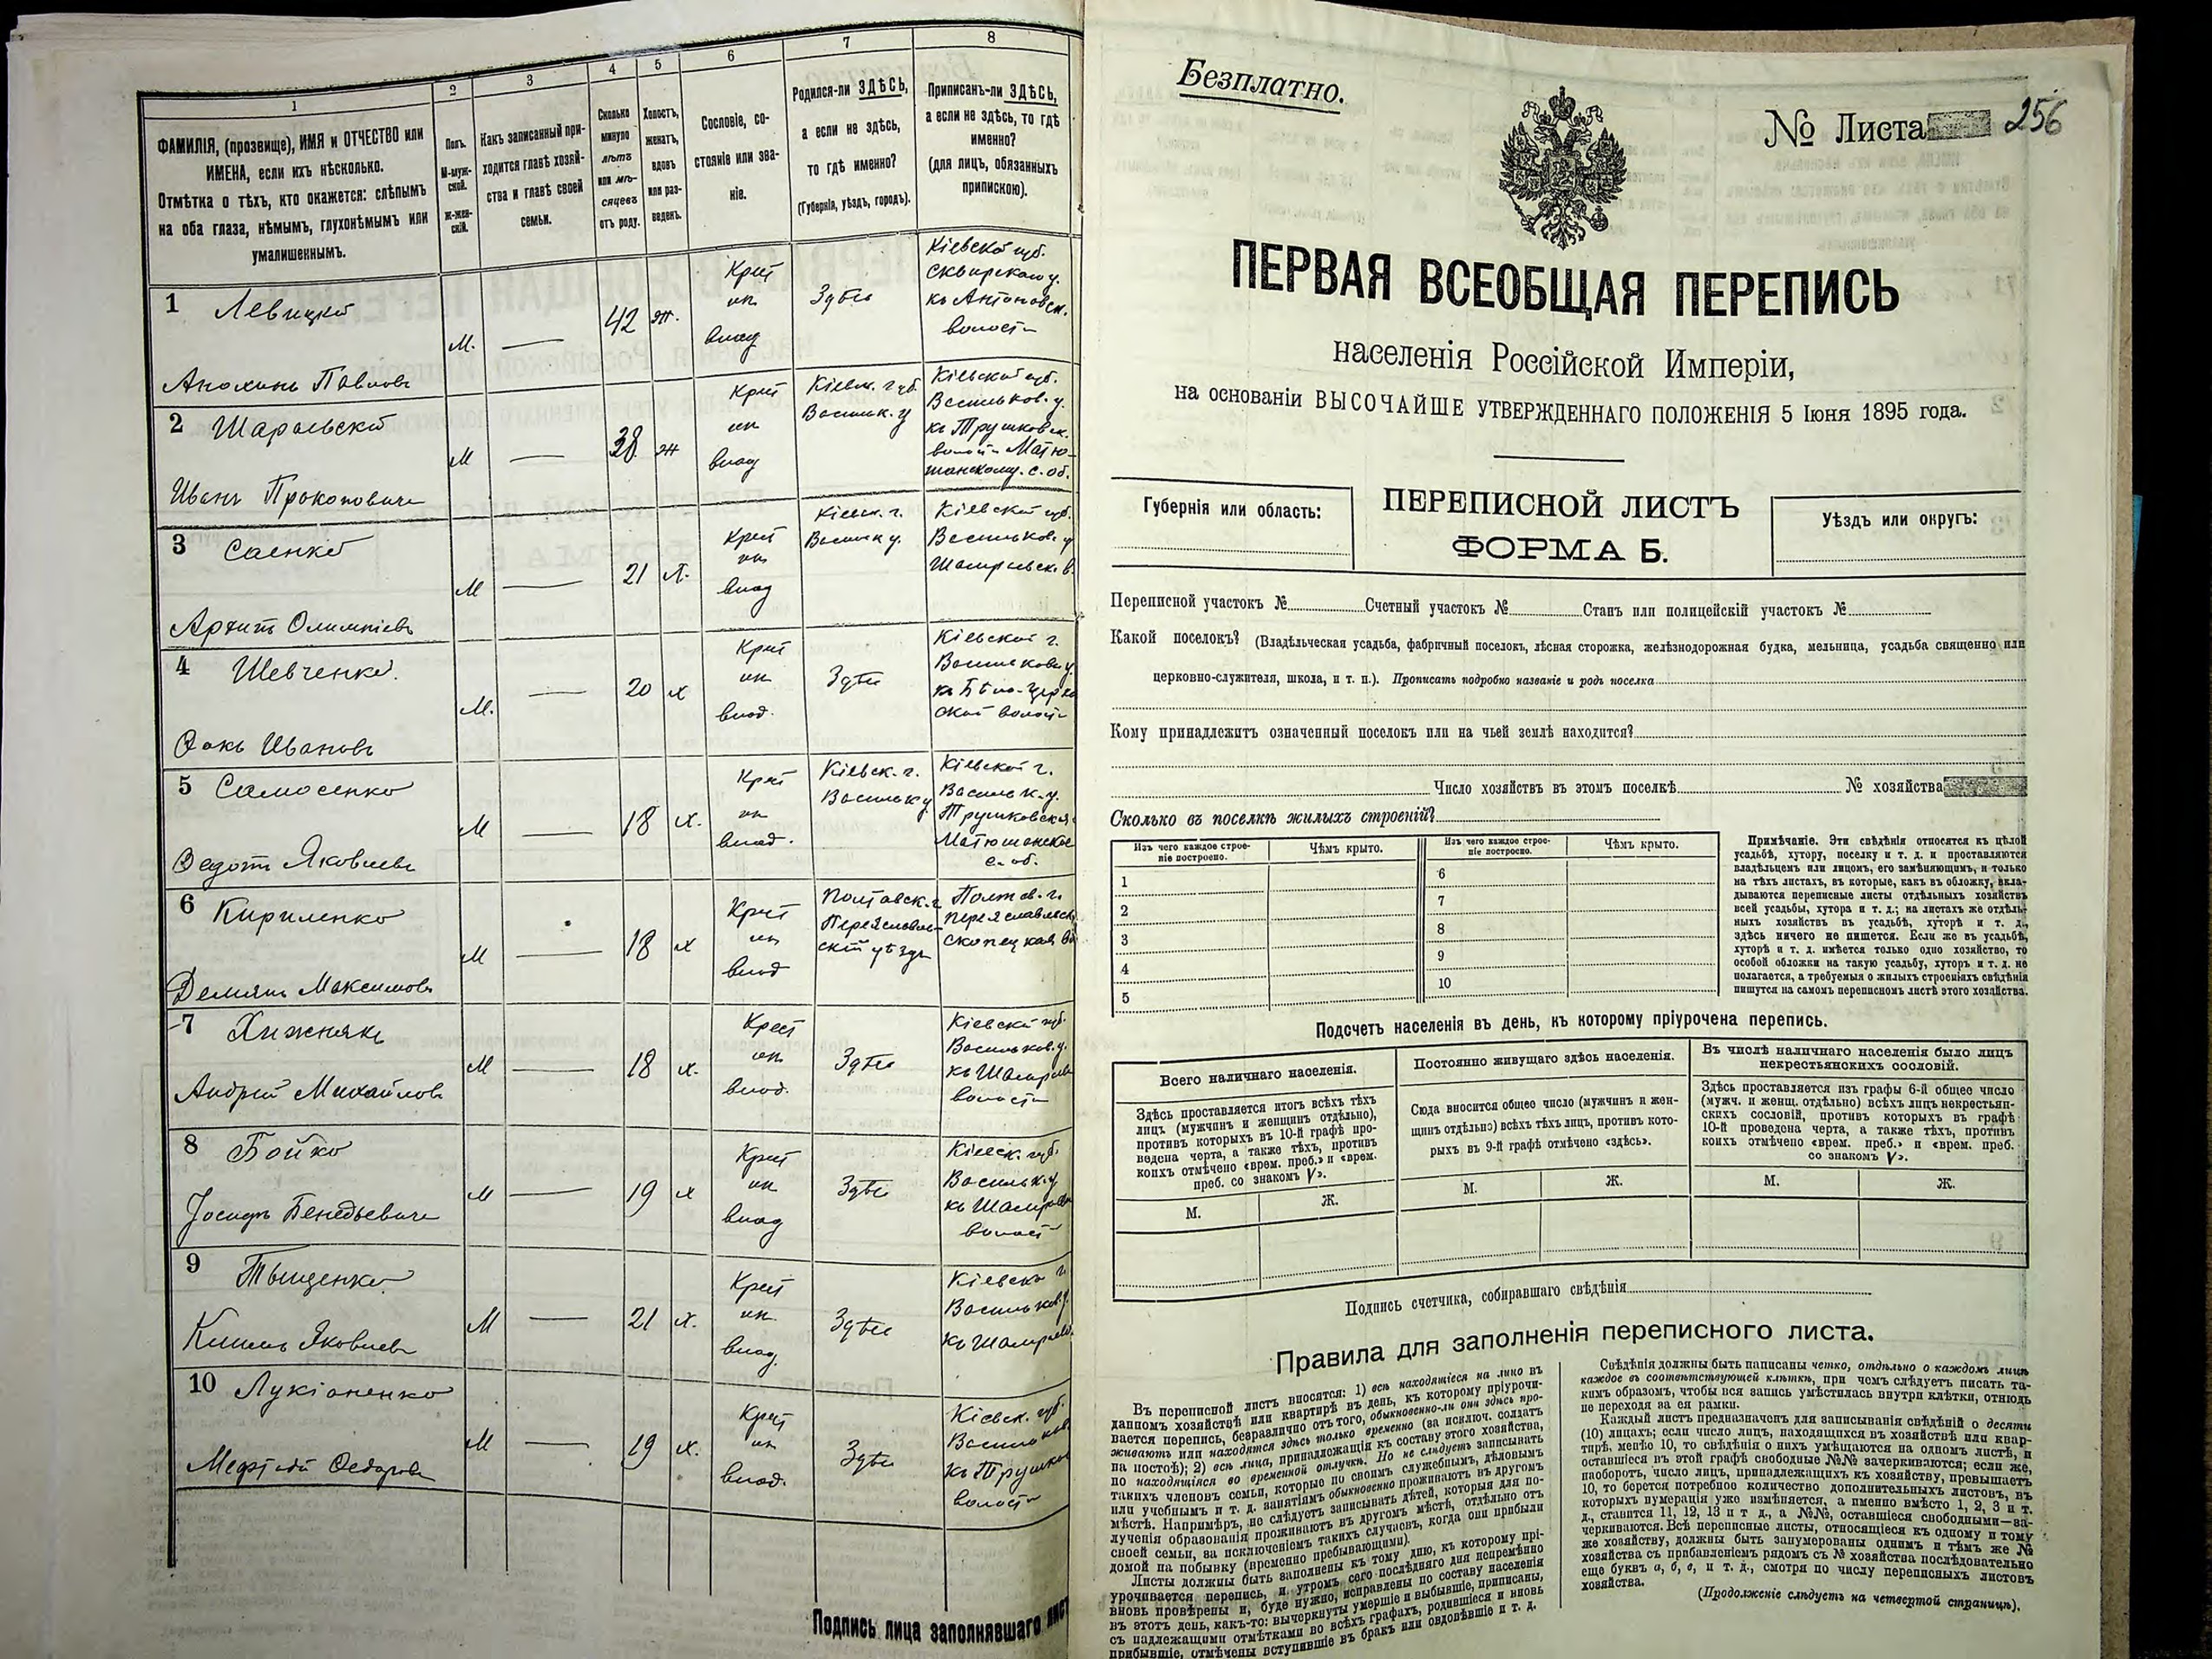 1
ФАМИЛІЯ, (прозвище), ИМЯ и ОТЧЕСТВО или
ИМЕНА, если ихъ нѣсколько.
Отмѣтка о тѣхъ, кто окажется: слѣпымъ
на оба глаза, нѣмымъ, глухонѣмымъ или
умалишеннымъ.
2
Полъ.
М-муж-
ской.
Ж-жен-
скій.
3
Какъ записанный при-
ходится главѣ хозяй-
ства и главѣ своей
семьи.
4
Сколько
минуло
лѣтъ
или мѣ-
сяцевъ
отъ роду.
5
Холостъ,
женатъ,
вдовъ
или раз-
веденъ.
6
Сословіе, со-
стояніе или зва-
ніе.
7
Родился-ли ЗДѢСЬ,
а если не здѣсь,
то гдѣ именно?
(Губернія, уѣздъ, городъ).
8
Приписанъ-ли ЗДѢСЬ,
а если не здѣсь, то гдѣ
именно?
(для лицъ, обязанныхъ
припискою).
1 Левицкій
Павловъ
М. — 42 ж.
Крест
Здѣсь
Кіевской губ.
Сквирскаго у.
къ Антоновск.
волости
2
Иванъ Прокоповичъ
М — 38 ж
Крест
Кіевск. губ.
Васильк. у
Кіевской губ.
Васильков. у.
къ Трушковск.
волости Матю-
шанскому. с. об.
3 Саенко
Архипъ Олимпіевъ
М — 21 х.
Крест
Кіевск. г.
Васильк у.
Кіевской губ.
Васильков. у
4 Шевченко.
Ивановъ
М. — 20 х
Крест
влад.
Здѣсь
Кіевской г.
Васильков у.
къ Бѣло-Церко
ской волости
5 Самосенко
Ѳедотъ Яковлевъ
М — 18 х.
Крест
влад.
Кіевск. г.
Васильк у
Кіевской г.
Васильк. у.
Трушковская
Матюшанское
с. об.
6 Кириленко
Демьянъ Максимовъ
М — 18 х
Крест
влад
Полтавск. г
Переяславль-
скій уѣздъ
Полтав. г.
Переяславльск
7 Хижнякъ
Андрей Михайловъ
М — 18 х.
Крест
влад.
Здѣсь
Кіевской губ.
Васильков. у.
волости
8 Бойко
Іосифъ
М — 19 х
Крест
Здѣсь
Кіевск. губ.
Васильк. у
волост
9 Тыщенко
Яковлевъ
М — 21 х.
Крест
Здѣсь
Кіевской г.
Васильков. у.
10 Лукіаненко
Меѳодій Ѳедоровъ
М — 19 х.
Крест
влад.
Здѣсь
Кіевск. губ.
Васильков.
къ Трушков
волости
Подпись лица заполнявшаго
Безплатно.
№ Листа 256
ПЕРВАЯ ВСЕОБЩАЯ ПЕРЕПИСЬ
населенія Россійской Имперіи,
на основаніи ВЫСОЧАЙШЕ УТВЕРЖДЕННАГО ПОЛОЖЕНІЯ 5 Іюня 1895 года.
Губернія или область:
ПЕРЕПИСНОЙ ЛИСТЪ
ФОРМА Б.
Уѣздъ или округъ:
Переписной участокъ № Счетный участокъ № Станъ или полицейскій участокъ №
Какой поселокъ? (Владѣльческая усадьба, фабричный поселокъ, лѣсная сторожка, желѣзнодорожная будка, мельница, усадьба священно или
церковно-служителя, школа, и т. п.). Прописать подробно названіе и родъ поселка
Кому принадлежитъ означенный поселокъ или на чьей землѣ находится?
Число хозяйствъ въ этомъ поселкѣ № хозяйства
Сколько въ поселкѣ жилыхъ строеній?
Изъ чего каждое строе-
ніе построено.
Чѣмъ крыто.
Изъ чего каждое строе-
ніе построено.
Чѣмъ крыто.
1 6
2 7
3 8
4 9
5 10
Примѣчаніе. Эти свѣдѣнія относятся къ цѣлой
усадьбѣ, хутору, поселку и т. д. и проставляются
владѣльцемъ или лицомъ, его замѣняющимъ, и только
на тѣхъ листахъ, въ которые, какъ въ обложку, вкла-
дываются переписные листы отдѣльныхъ хозяйствъ
всей усадьбы, хутора и т. д.; на листахъ же отдѣль-
ныхъ хозяйствъ въ усадьбѣ, хуторѣ и т. д.,
здѣсь ничего не пишется. Если же въ усадьбѣ,
хуторѣ и т. д. имѣется только одно хозяйство, то
особой обложки на такую усадьбу, хуторъ и т. д. не
полагается, а требуемыя о жилыхъ строеніяхъ свѣдѣнія
пишутся на самомъ переписномъ листѣ этого хозяйства.
Подсчетъ населенія въ день, къ которому пріурочена перепись.
Всего наличнаго населенія.
Здѣсь проставляется итогъ всѣхъ тѣхъ
лицъ (мужчинъ и женщинъ отдѣльно),
противъ которыхъ въ 10-й графѣ про-
ведена черта, а также тѣхъ, противъ
коихъ отмѣчено «врем. преб.» и «врем.
преб. со знакомъ V».
М. Ж.
Постоянно живущаго здѣсь населенія.
Сюда вносится общее число (мужчинъ и жен-
щинъ отдѣльно) всѣхъ тѣхъ лицъ, противъ кото-
рыхъ въ 9-й графѣ отмѣчено «здѣсь».
М. Ж.
Въ числѣ наличнаго населенія было лицъ
некрестьянскихъ сословій.
Здѣсь проставляется изъ графы 6-й общее число
(мужч. и женщ. отдѣльно) всѣхъ лицъ некрестьян-
скихъ сословій, противъ которыхъ въ графѣ
10-й проведена черта, а также тѣхъ, противъ
коихъ отмѣчено «врем. преб.» и «врем. преб.
со знакомъ V».
М. Ж.
Подпись счетчика, собиравшаго свѣдѣнія
Правила для заполненія переписного листа.
Въ переписной листъ вносятся: 1) всѣ находящіеся на лицо въ
данномъ хозяйствѣ или квартирѣ въ день, къ которому пріурочи-
вается перепись, безразлично отъ того, обыкновенно-ли они здѣсь про-
живаютъ или находятся здѣсь только временно (за исключ. солдатъ
на постоѣ); 2) всѣ лица, принадлежащія къ составу этого хозяйства,
но находящіяся во временной отлучкѣ. Но не слѣдуетъ записывать
такихъ членовъ семьи, которые по своимъ служебнымъ, дѣловымъ
или учебнымъ и т. д. занятіямъ обыкновенно проживаютъ въ другомъ
мѣстѣ. Напримѣръ, не слѣдуетъ записывать дѣтей, которыя для по-
лученія образованія проживаютъ въ другомъ мѣстѣ, отдѣльно отъ
своей семьи, за исключеніемъ такихъ случаевъ, когда они прибыли
домой на побывку (временно пребывающими).
Листы должны быть заполнены къ тому дню, къ которому прі-
урочивается перепись, и утромъ сего послѣдняго дня непремѣнно
вновь провѣрены и, буде нужно, исправлены по составу населенія
въ этотъ день, какъ-то: вычеркнуты умершіе и выбывшіе, приписаны,
съ надлежащими отмѣтками во всѣхъ графахъ, родившіеся и вновь
прибывшіе, отмѣчены вступившіе въ бракъ или овдовѣвшіе и т. д.
Свѣдѣнія должны быть написаны четко, отдѣльно о каждомъ лицѣ
каждое въ соотвѣтствующей клѣткѣ, при чемъ слѣдуетъ писать та-
кимъ образомъ, чтобы вся запись умѣстилась внутри клѣтки, отнюдь
не переходя за ея рамки.
Каждый листъ предназначенъ для записыванія свѣдѣній о десяти
(10) лицахъ; если число лицъ, находящихся въ хозяйствѣ или квар-
тирѣ, менѣе 10, то свѣдѣнія о нихъ умѣщаются на одномъ листѣ, и
оставшіеся въ этой графѣ свободные №№ зачеркиваются; если же,
наоборотъ, число лицъ, принадлежащихъ къ хозяйству, превышаетъ
10, то берется потребное количество дополнительныхъ листовъ, въ
которыхъ нумерація уже измѣняется, а именно вмѣсто 1, 2, 3 и т.
д., ставится 11, 12, 13 и т д., а №№, оставшіеся свободными—за-
черкиваются. Всѣ переписные листы, относящіеся къ одному и тому
же хозяйству, должны быть занумерованы однимъ и тѣмъ же №
хозяйства съ прибавленіемъ рядомъ съ № хозяйства послѣдовательно
еще буквъ а, б, в, и т. д., смотря по числу переписныхъ листовъ
хозяйства.
(Продолженіе слѣдуетъ на четвертой страницѣ).